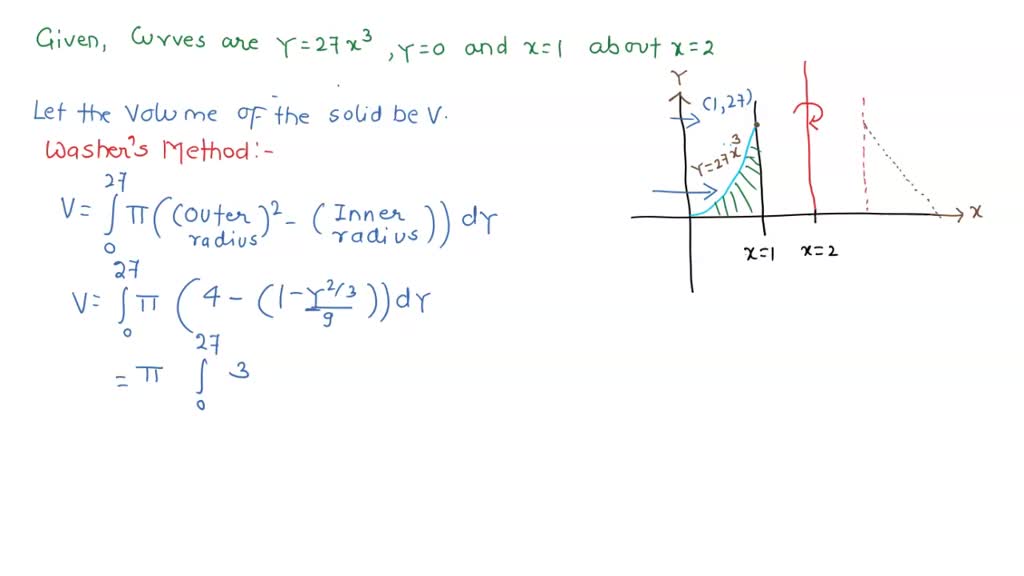 Given, Curves are Y=27x³, Y=0 and x=1 about x=2
Let the Volume of the solid be V.
Washer's Method:-
V= ∫₀²⁷ π((Outer radius)² - (Inner radius)) dY
V= ∫₀²⁷ π (4 - (1 - Y^(2/3)/9)) dY
= π ∫₀²⁷ 3
Y
(1,27)
Y=27x³
x
x=1
x=2